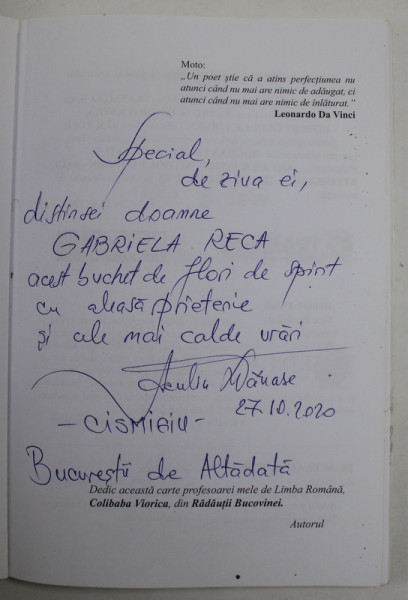 Moto:
„Un poet știe că a atins perfecțiunea nu
atunci când nu mai are nimic de adăugat, ci
atunci când nu mai are nimic de înlăturat.”
Leonardo Da Vinci
Special,
de ziua ei,
distinsei doamne
GABRIELA RECA
acest buchet de flori de spirit
cu aleasă prietenie
și cele mai calde urări
27.10.2020
- CISMIGIU -
Bucureștii de Altădată
Dedic această carte profesoarei mele de Limba Română,
Colibaba Viorica, din Rădăuții Bucovinei.
Autorul